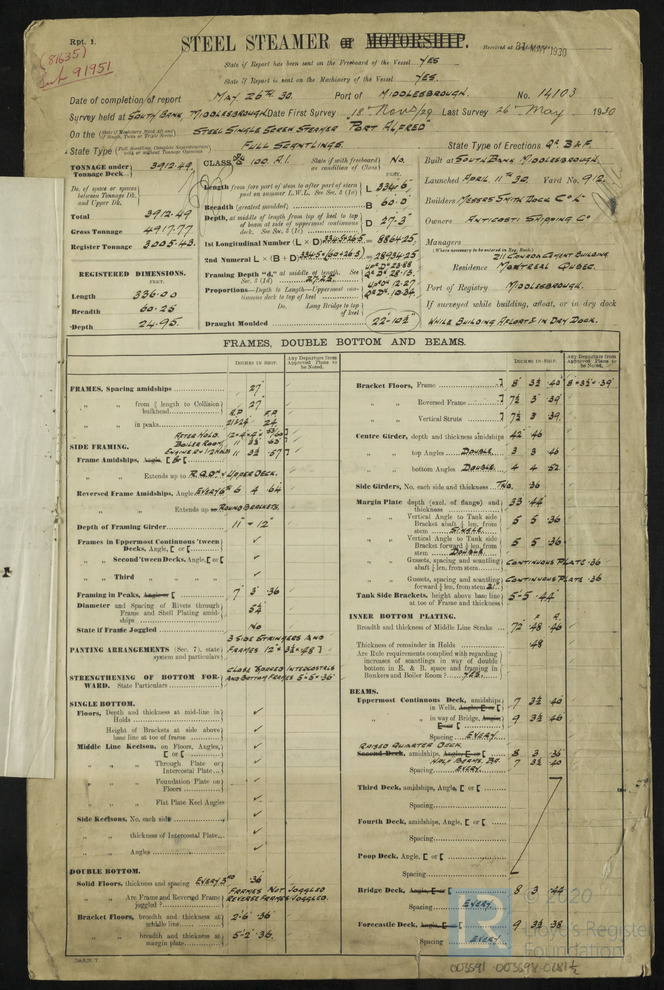 Rpt. 1.
STEEL STEAMER or MOTORSHIP.
(81635)
91951
Received at
State if Report has been sent on the Freeboard of the Vessel YES
State if Report is sent on the Machinery of the Vessel YES.
Date of completion of report MAY 26TH 30. Port of MIDDLESBROUGH. No. 14103
Survey held at SOUTH BANK, MIDDLESBROUGH Date First Survey 18th Nov 29 Last Survey 26 May 1930
On the STEEL SINGLE SCREW STEAMER "PORT ALFRED"
State Type FULL SCANTLINGS. State Type of Erections
TONNAGE under Tonnage Deck 3912.49
CLASS 100. A.I. State if with freeboard as condition of Class No.
Built at SOUTH BANK MIDDLESBROUGH.
Do. of space or spaces between Tonnage Dk. and Upper Dk.
Length from fore part of stem to after part of stern post on summer L.W.L. See Sec. 3 (1a) L 334.5
Launched APRIL 11TH 30. Yard No. 912.
Breadth (greatest moulded) B 60.0
Builders MESSRS SMITH DOCK CO LD
Total 3912.49
Depth, at middle of length from top of keel to top of beam at side of uppermost continuous deck. See Sec. 3 (1c) D 27.3
Gross Tonnage 4917.77
Owners ANTICOSTI SHIPPING CO
Register Tonnage 3005.43.
1st Longitudinal Number (L × D) 334.5×26.5 = 8864.25
2nd Numeral L × (B + D) 334.5×(60+26.5) = 28934.25
Managers
(Where necessary to be entered in Reg. Book.)
Residence 211 CONRAD CEMENT BUILDING, MONTREAL QUBEC.
REGISTERED DIMENSIONS.
FEET.
Framing Depth "d," at middle of length. See Sec. 3 (1d) 27.25
Proportions—Depth to Length—Uppermost continuous deck to top of keel
Port of Registry MIDDLESBROUGH.
Length 336.00
Do. Long Bridge to top of keel
If surveyed while building, afloat, or in dry dock
Breadth 60.25
Depth 24.95.
Draught Moulded 22'-10½"
WHILE BUILDING AFLOAT & IN DRY DOCK.
FRAMES, DOUBLE BOTTOM AND BEAMS.
INCHES IN SHIP.
Any Departure from Approved Plans to be Noted.
INCHES IN SHIP.
Any Departure from Approved Plans to be Noted.
FRAMES, Spacing amidships 27"
from ⅗ length to Collision bulkhead 27
in peaks
SIDE FRAMING.
AFTER HOLD.
BOILER ROOM,
Frame Amidships, Angle, [ or [
Extends up to R.Q.DK & UPPER DECK.
Reversed Frame Amidships, Angle EVERY 6TH 6 4 .64
Extends up ROUND BRACKETS.
Depth of Framing Girder 11" & 12"
Frames in Uppermost Continuous 'tween Decks, Angle, [ or [
Second 'tween Decks, Angle, [ or [
Third
Framing in Peaks, Angle or [ 7 3 .36
Diameter and Spacing of Rivets through Frame and Shell Plating amidships
State if Frame Joggled No
PANTING ARRANGEMENTS (Sec. 7), state system and particulars 3 SIDE STRINGERS AND FRAMES 12" × 3½" × .48
STRENGTHENING OF BOTTOM FORWARD. State Particulars CLOSE SPACED INTERCOSTALS AND BOTTOM FRAMES 5×5×.36
SINGLE BOTTOM.
Floors, Depth and thickness at mid-line in Holds
Height of Brackets at side above base line at toe of frame
Middle Line Keelson, on Floors, Angles, [ or [
Through Plate or Intercostal Plate
Foundation Plate on Floors
Flat Plate Keel Angles
Side Keelsons, No. each side
thickness of Intercostal Plate
Angles
DOUBLE BOTTOM.
Solid Floors, thickness and spacing EVERY 3RD .36
Are Frame and Reversed Frame joggled? FRAMES NOT JOGGLED REVERSE FRAMES JOGGLED.
Bracket Floors, breadth and thickness at middle line 2'-6" .36
breadth and thickness at margin plate 5'-2" .36.
Bracket Floors, Frame 8 3½ .40 8"×3½"×.39
Reversed Frame 7½ 3 .39
Vertical Struts 7½ 3 .39
Centre Girder, depth and thickness amidships 42 .46
top Angles DOUBLE 3 3 .46
bottom Angles DOUBLE 4 4 .52
Side Girders, No. each side and thickness TWO. .36
Margin Plate depth (excl. of flange) and thickness 33 .44
Vertical Angle to Tank side Bracket abaft ¼ len. from stem SINGLE 5 5 .36
Vertical Angle to Tank side Bracket forward ¼ len. from stem DOUBLE 5 5 .36
Gussets, spacing and scantling abaft ¼ len. from stem CONTINUOUS PLATE .36
Gussets, spacing and scantling forward ¼ len. from stem CONTINUOUS PLATE .36
Tank Side Brackets, height above base line at toe of Frame and thickness 5'-5" .44
INNER BOTTOM PLATING.
Breadth and thickness of Middle Line Strake 72 .48 .46
Thickness of remainder in Holds .48
Are Rule requirements complied with regarding increases of scantlings in way of double bottom in E. & B. space and framing in Bunkers and Boiler Room? YES.
BEAMS.
Uppermost Continuous Deck, amidships in Wells, Angle, [ or [ 7 3½ .40
in way of Bridge, Angle, [ or [ 9 3½ .46
Spacing EVERY
RAISED QUARTER DECK
Second Deck, amidships, Angle, [ or [ 8 3 .36
HALF BEAMS. DO. 7 3½ .40
Spacing EVERY.
Third Deck, amidships, Angle, [ or [
Spacing
Fourth Deck, amidships, Angle, [ or [
Spacing
Poop Deck, Angle, [ or [
Spacing
Bridge Deck, Angle, [ or [ 8 3 .44
Spacing EVERY
Forecastle Deck, Angle, [ or [ 9 3½ .38
Spacing EVERY
© 2020
Lloyd's Register
Foundation
003591 - 003598 - 0281½